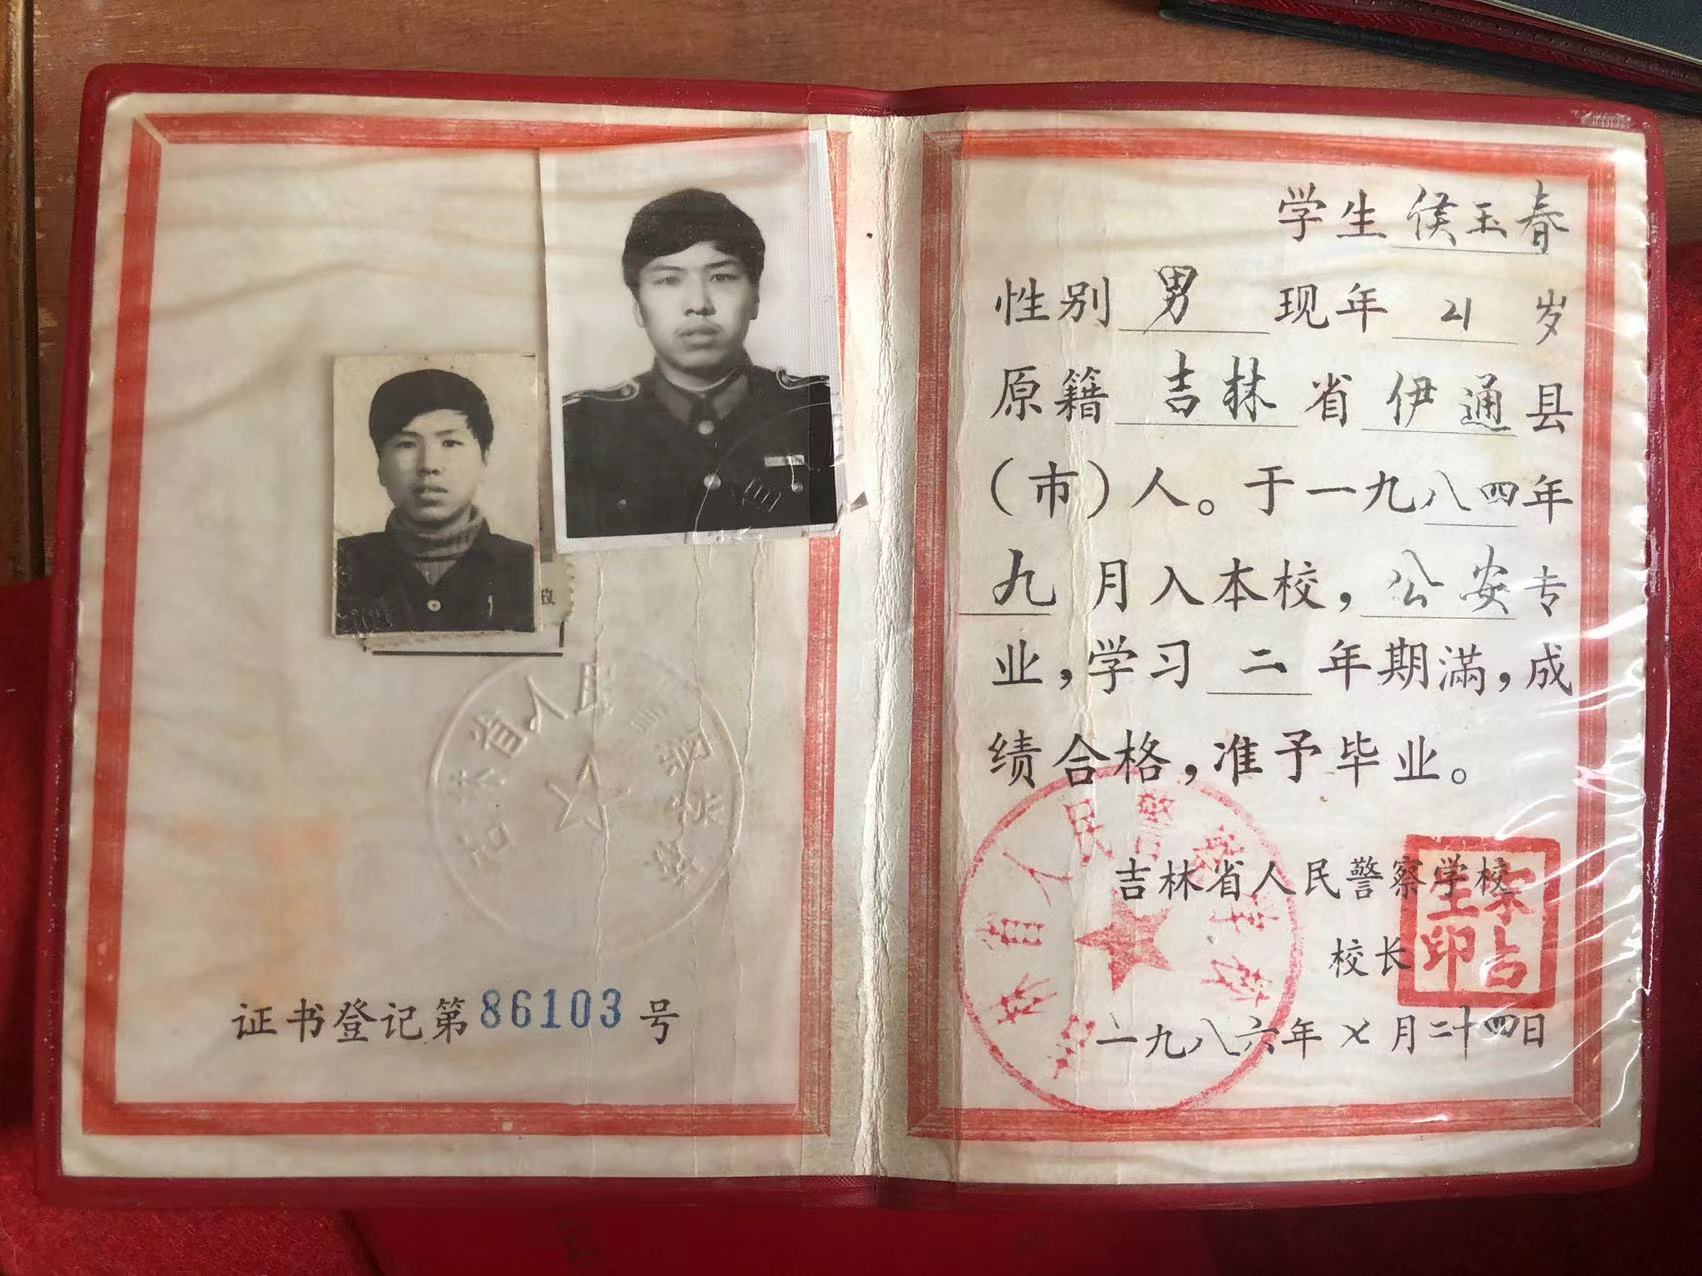 证书登记第86103号
吉林省人民
学生 侯玉春
性别 男 现年 21 岁
原籍 吉林 省 伊通 县
（市）人。于一九八四年
九 月入本校，公安专
业，学习 二 年期满，成
绩合格，准予毕业。
吉林省人民警察学校
校长
一九八六年七月二十四日
吉林省人民警察学校